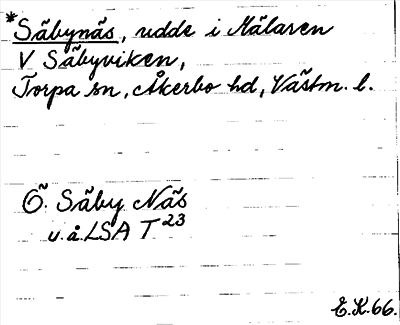 *Säbynäs, udde i Mälaren
V Säbyviken,
Torpa sn, Åkerbo hd, Västm. l.
Ö. Säby Näs
u.å. LSA T 23
E.K. 66.